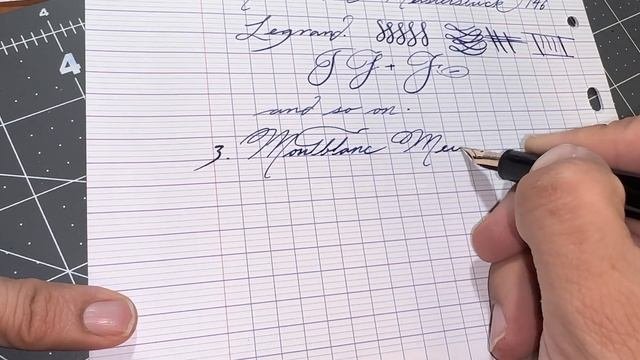 Meisterstück 146
Legrand.
and so on.
3. Montblanc Me
4
4